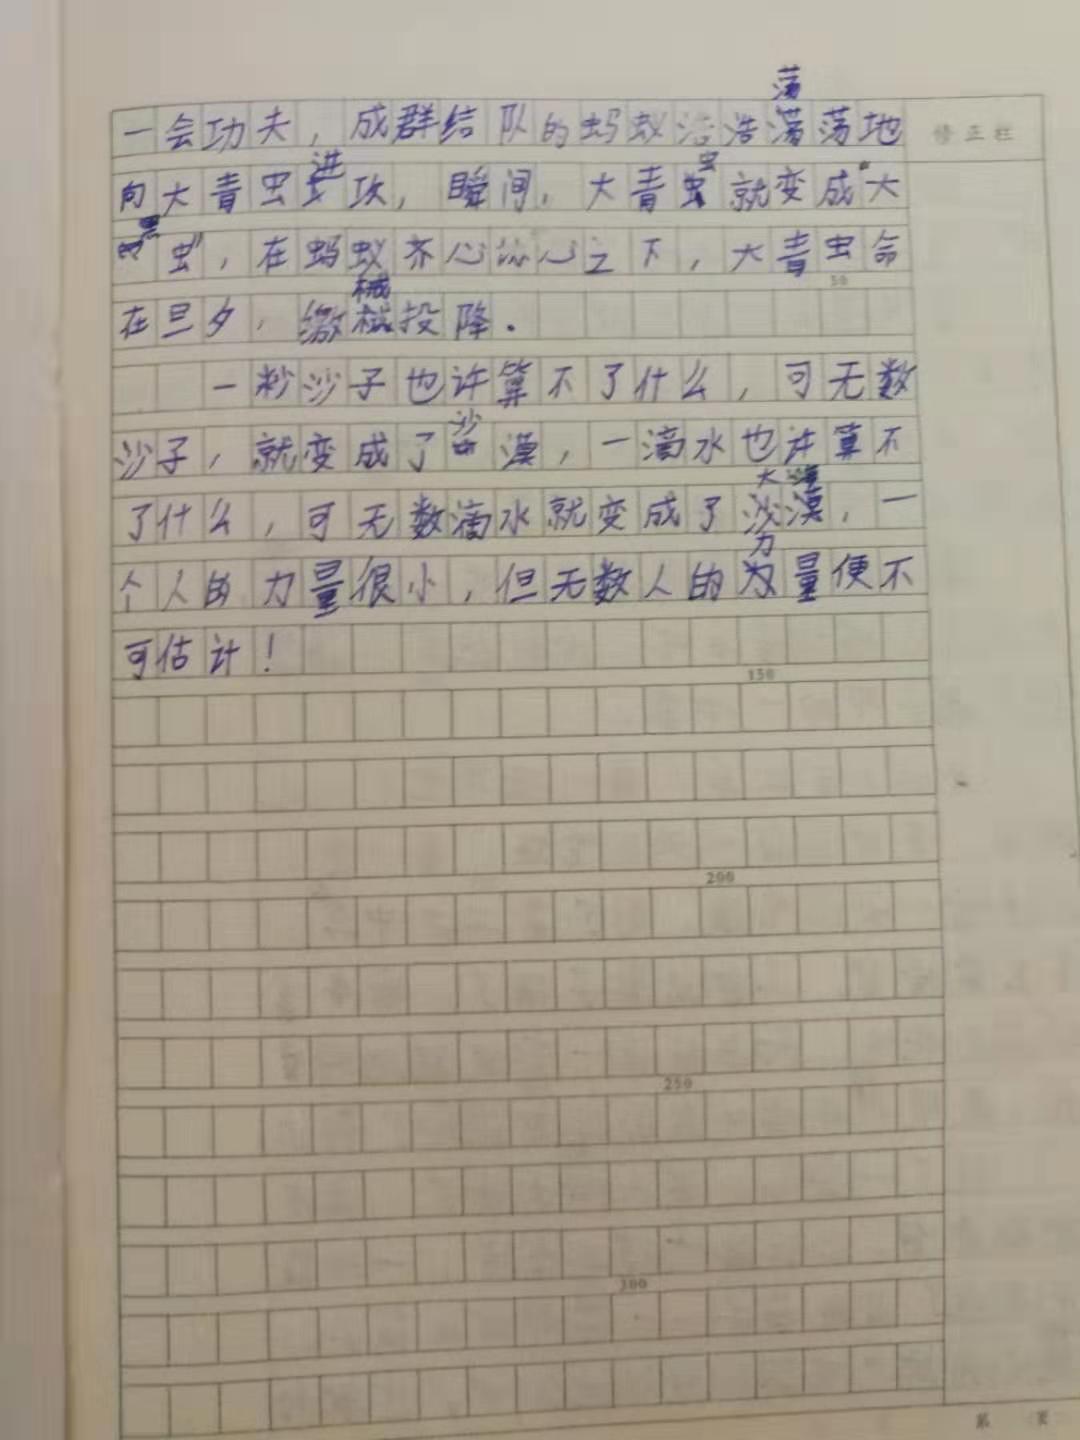 一会功夫，成群结队的蚂蚁浩浩荡荡地
修正栏
向大青虫进攻，瞬间，大青虫就变成"大
黑虫"，在蚂蚁齐心协心之下，大青虫命
50
在旦夕，缴械投降.
一粒沙子也许算不了什么，可无数
沙子，就变成了沙漠，一滴水也许算不
了什么，可无数滴水就变成了大漠，一
个人的力量很小，但无数人的力量便不
可估计！
150
200
250
300
第 页